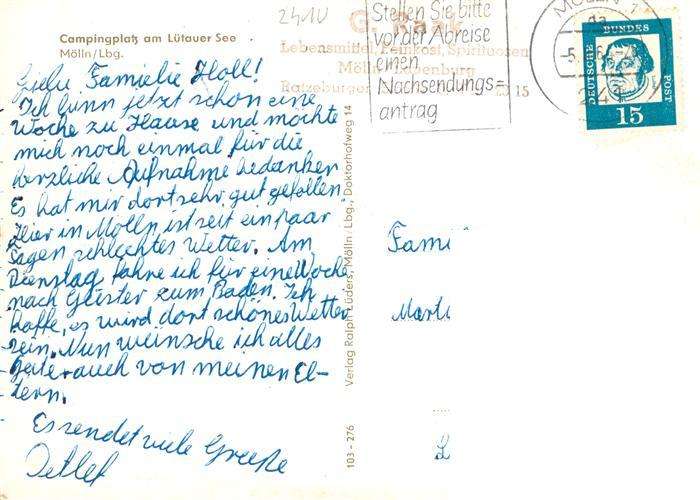 Campingplatz am Lütauer See
Mölln/Lbg.
Liebe Familie Holl!
Ich bunn jetzt schon eine
Woche zu Hause und möchte
mich noch einmal für die
herzliche Aufnahme bedanken
Es hat mir dort sehr gut gefallen.
Hier in Mölln ist seit ein paar
Tagen schlechtes Wetter. Am
Dienstag fahre ich für eine Woche
nach zum Baden. Ich
hoffe, es wird dort schönes Wetter
sein. Nun wünsche ich alles
Gute auch von meinen El-
tern.
Es sendet viele Grüße
Detlef
103 - 276 Verlag Ralph Lüders, Mölln/Lbg., Doktorhofweg 14
2410
Lebensmittel, Feinkost, Spirituosen
Ratzeburger 15
Stellen Sie bitte
vor der Abreise
einen
Nachsendungs-
antrag
MÖLLN
DEUTSCHE BUNDES POST
15
Fami
Mart
L